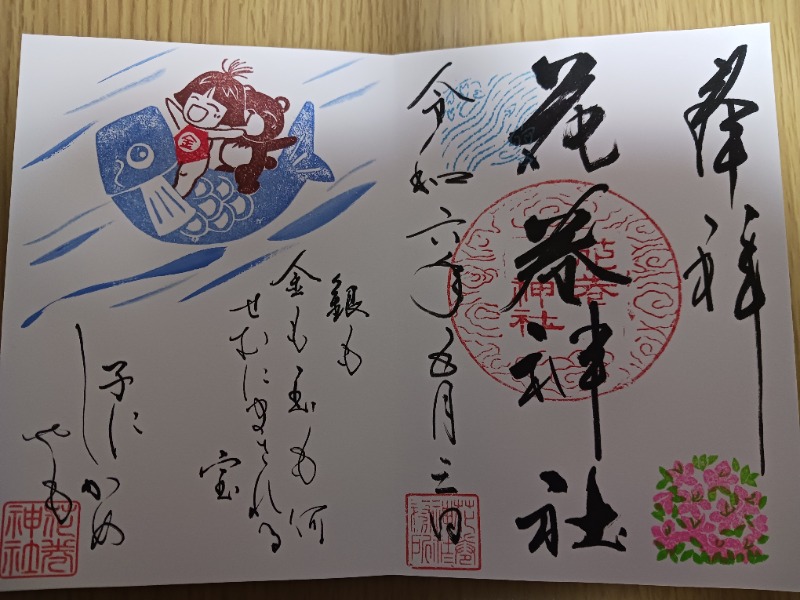 奉拝
花巻神社
花巻
神社
令和六年五月三日
金
銀も
金も玉も何
せむにまされる
宝
子に
しかめ
やも
花巻
神社